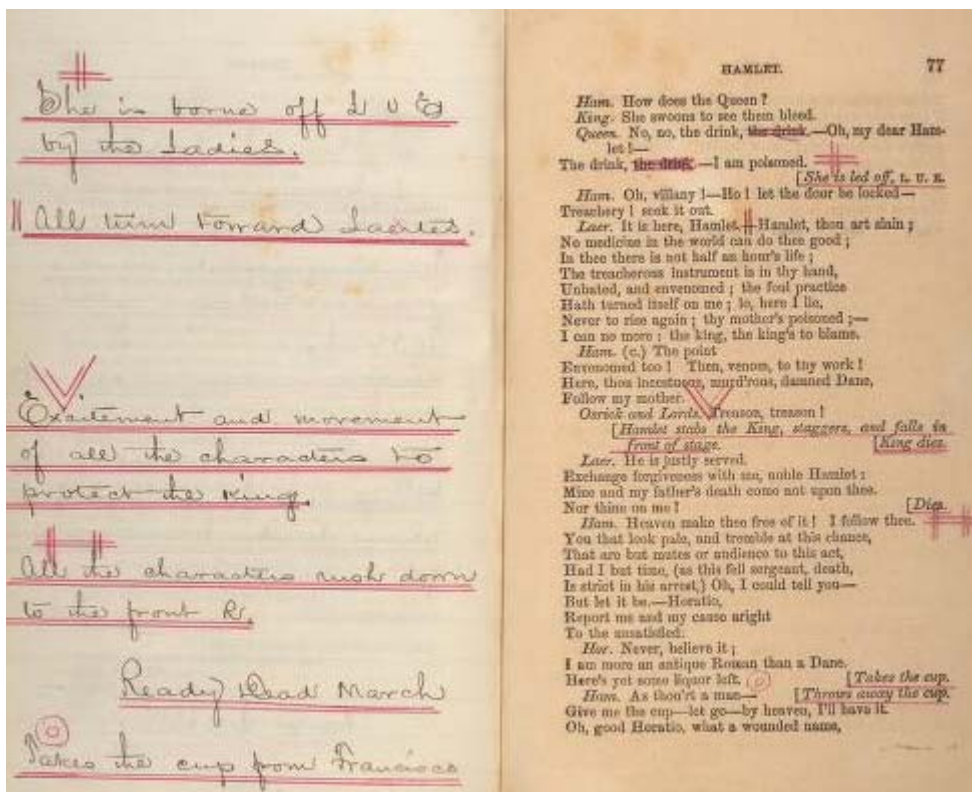 She is borne off L U E
by the Ladies.
All turn toward Laertes.
Excitement and movement
of all the characters to
protect the King.
All the characters rush down
to the front R.
Ready Dead March
Takes the cup from Francisco
HAMLET. 77
Ham. How does the Queen?
King. She swoons to see them bleed.
Queen. No, no, the drink, the drink.—Oh, my dear Ham-
let!—
The drink, the drink—I am poisoned.
[She is led off, L. U. E.
Ham. Oh, villany!—Ho! let the door be locked—
Treachery! seek it out.
Laer. It is here, Hamlet.—Hamlet, thou art slain;
No medicine in the world can do thee good;
In thee there is not half an hour's life;
The treacherous instrument is in thy hand,
Unbated, and envenomed; the foul practice
Hath turned itself on me; lo, here I lie,
Never to rise again; thy mother's poisoned;—
I can no more: the king, the king's to blame.
Ham. (C.) The point
Envenomed too! Then, venom, to thy work!
Here, thou incestuous, murd'rous, damned Dane,
Follow my mother.
Osrick and Lords. Treason, treason!
[Hamlet stabs the King, staggers, and falls in
front of stage. [King dies.
Laer. He is justly served.
Exchange forgiveness with me, noble Hamlet:
Mine and my father's death come not upon thee.
Nor thine on me! [Dies.
Ham. Heaven make thee free of it! I follow thee.
You that look pale, and tremble at this chance,
That are but mutes or audience to this act,
Had I but time, (as this fell sergeant, death,
Is strict in his arrest,) Oh, I could tell you—
But let it be.—Horatio,
Report me and my cause aright
To the unsatisfied.
Hor. Never, believe it;
I am more an antique Roman than a Dane.
Here's yet some liquor left. [Takes the cup.
Ham. As thou'rt a man— [Throws away the cup.
Give me the cup—let go—by heaven, I'll have it.
Oh, good Horatio, what a wounded name,